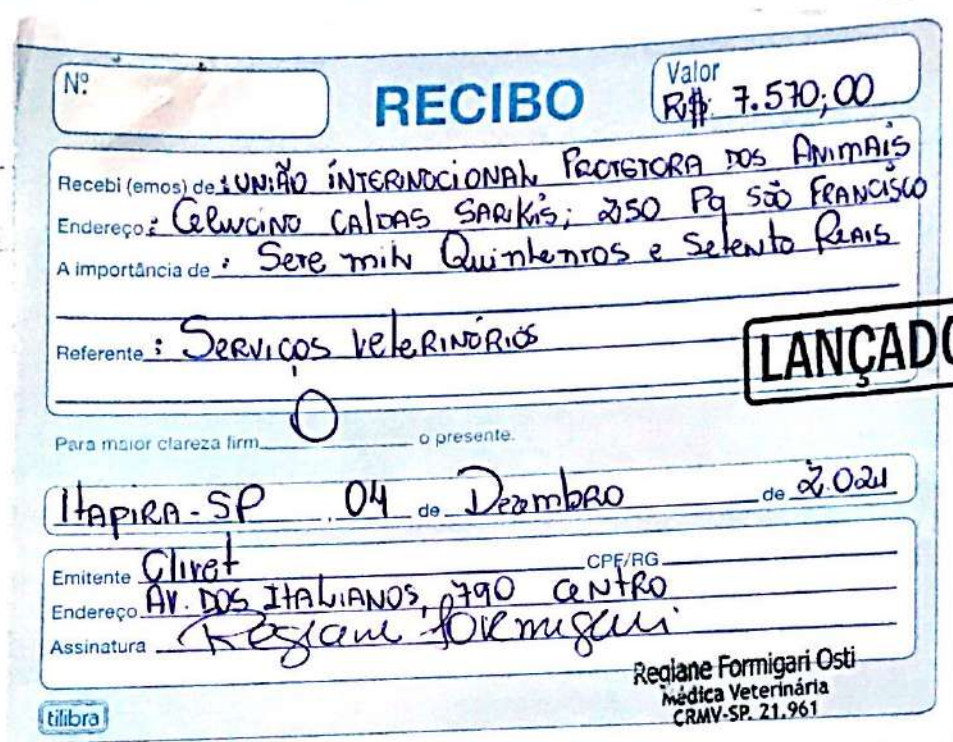 Nº
RECIBO
Valor
R$: 7.570,00
Recebi (emos) de : UNIÃO INTERNOCIONAL PROTETORA DOS ANIMAIS
Endereço : CELUCINO CALDAS SARKIS; 2150 Pq SÃO FRANCISCO
A importância de : Sete mil Quinhentos e Setento Reais
Referente : Serviços veterinórios
LANÇADO
Para maior clareza firm O o presente.
ITAPIRA-SP 04 de Dezembro de
Emitente Clivet CPF/RG
Endereço AV. DOS ITALIANOS, 790 CENTRO
Assinatura Regiane Formigari
Regiane Formigari Osti
Médica Veterinária
CRMV-SP. 21.961
tilibra